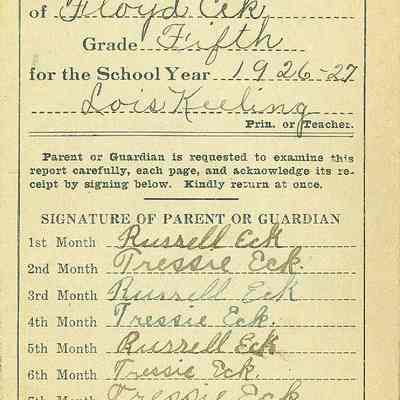 of Floyd Eck
Grade Fifth
for the School Year 1926-27
Lois Keeling
Prin. or Teacher.
Parent or Guardian is requested to examine this
report carefully, each page, and acknowledge its re-
ceipt by signing below. Kindly return at once.
SIGNATURE OF PARENT OR GUARDIAN
1st Month Russell Eck
2nd Month Tressie Eck.
3rd Month Russell Eck
4th Month Tressie Eck.
5th Month Russell Eck
6th Month Tressie Eck.
Month Tressie Eck